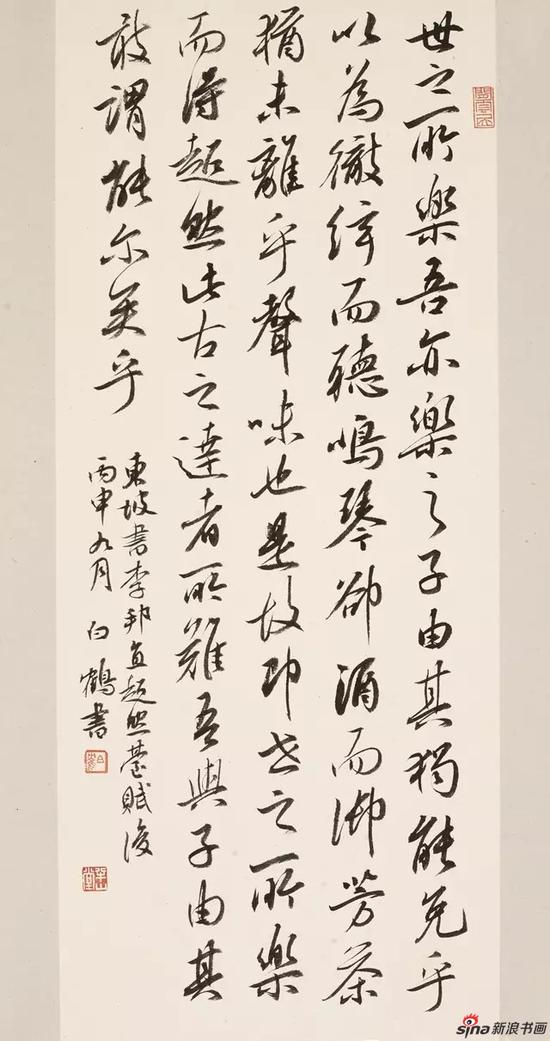 世之所樂吾亦樂之子由其獨能免乎
以為徹絃而聽鳴琴卻酒而御芳茶
猶未離乎聲味也是故即世之所樂
而得超然此古之達者所難吾與子由其
敢謂能尔矣乎
東坡書李邦直超然臺賦後
丙申九月 白鶴書
sina新浪书画